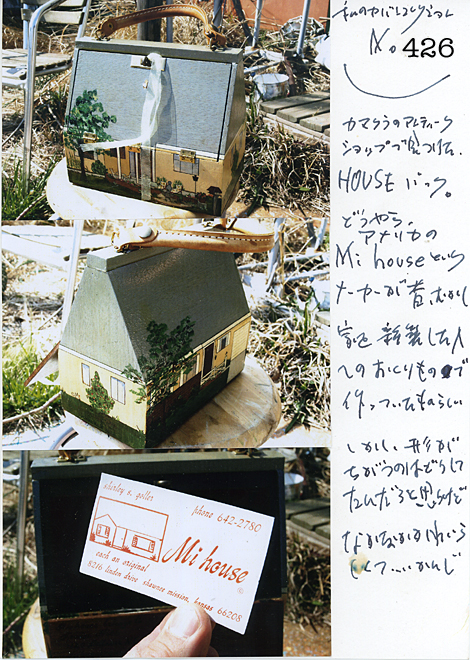 私のカバンコレクション
No. 426
カマクラのアンティーク
ショップで見つけた
HOUSE バック。
どうやら、
アメリカの
Mi house という
メーカーが昔、
家を新築した人
へのおくりもの で
作っていたものらしい
しかし、形が
ちがうのはどうして
なんだろうと思うけど
なかなかかわいら
しくて…いいかんじ
shirley s.
phone 642-2780
Mi house
each an original
8216 linden drive shawnee mission, kansas 66208